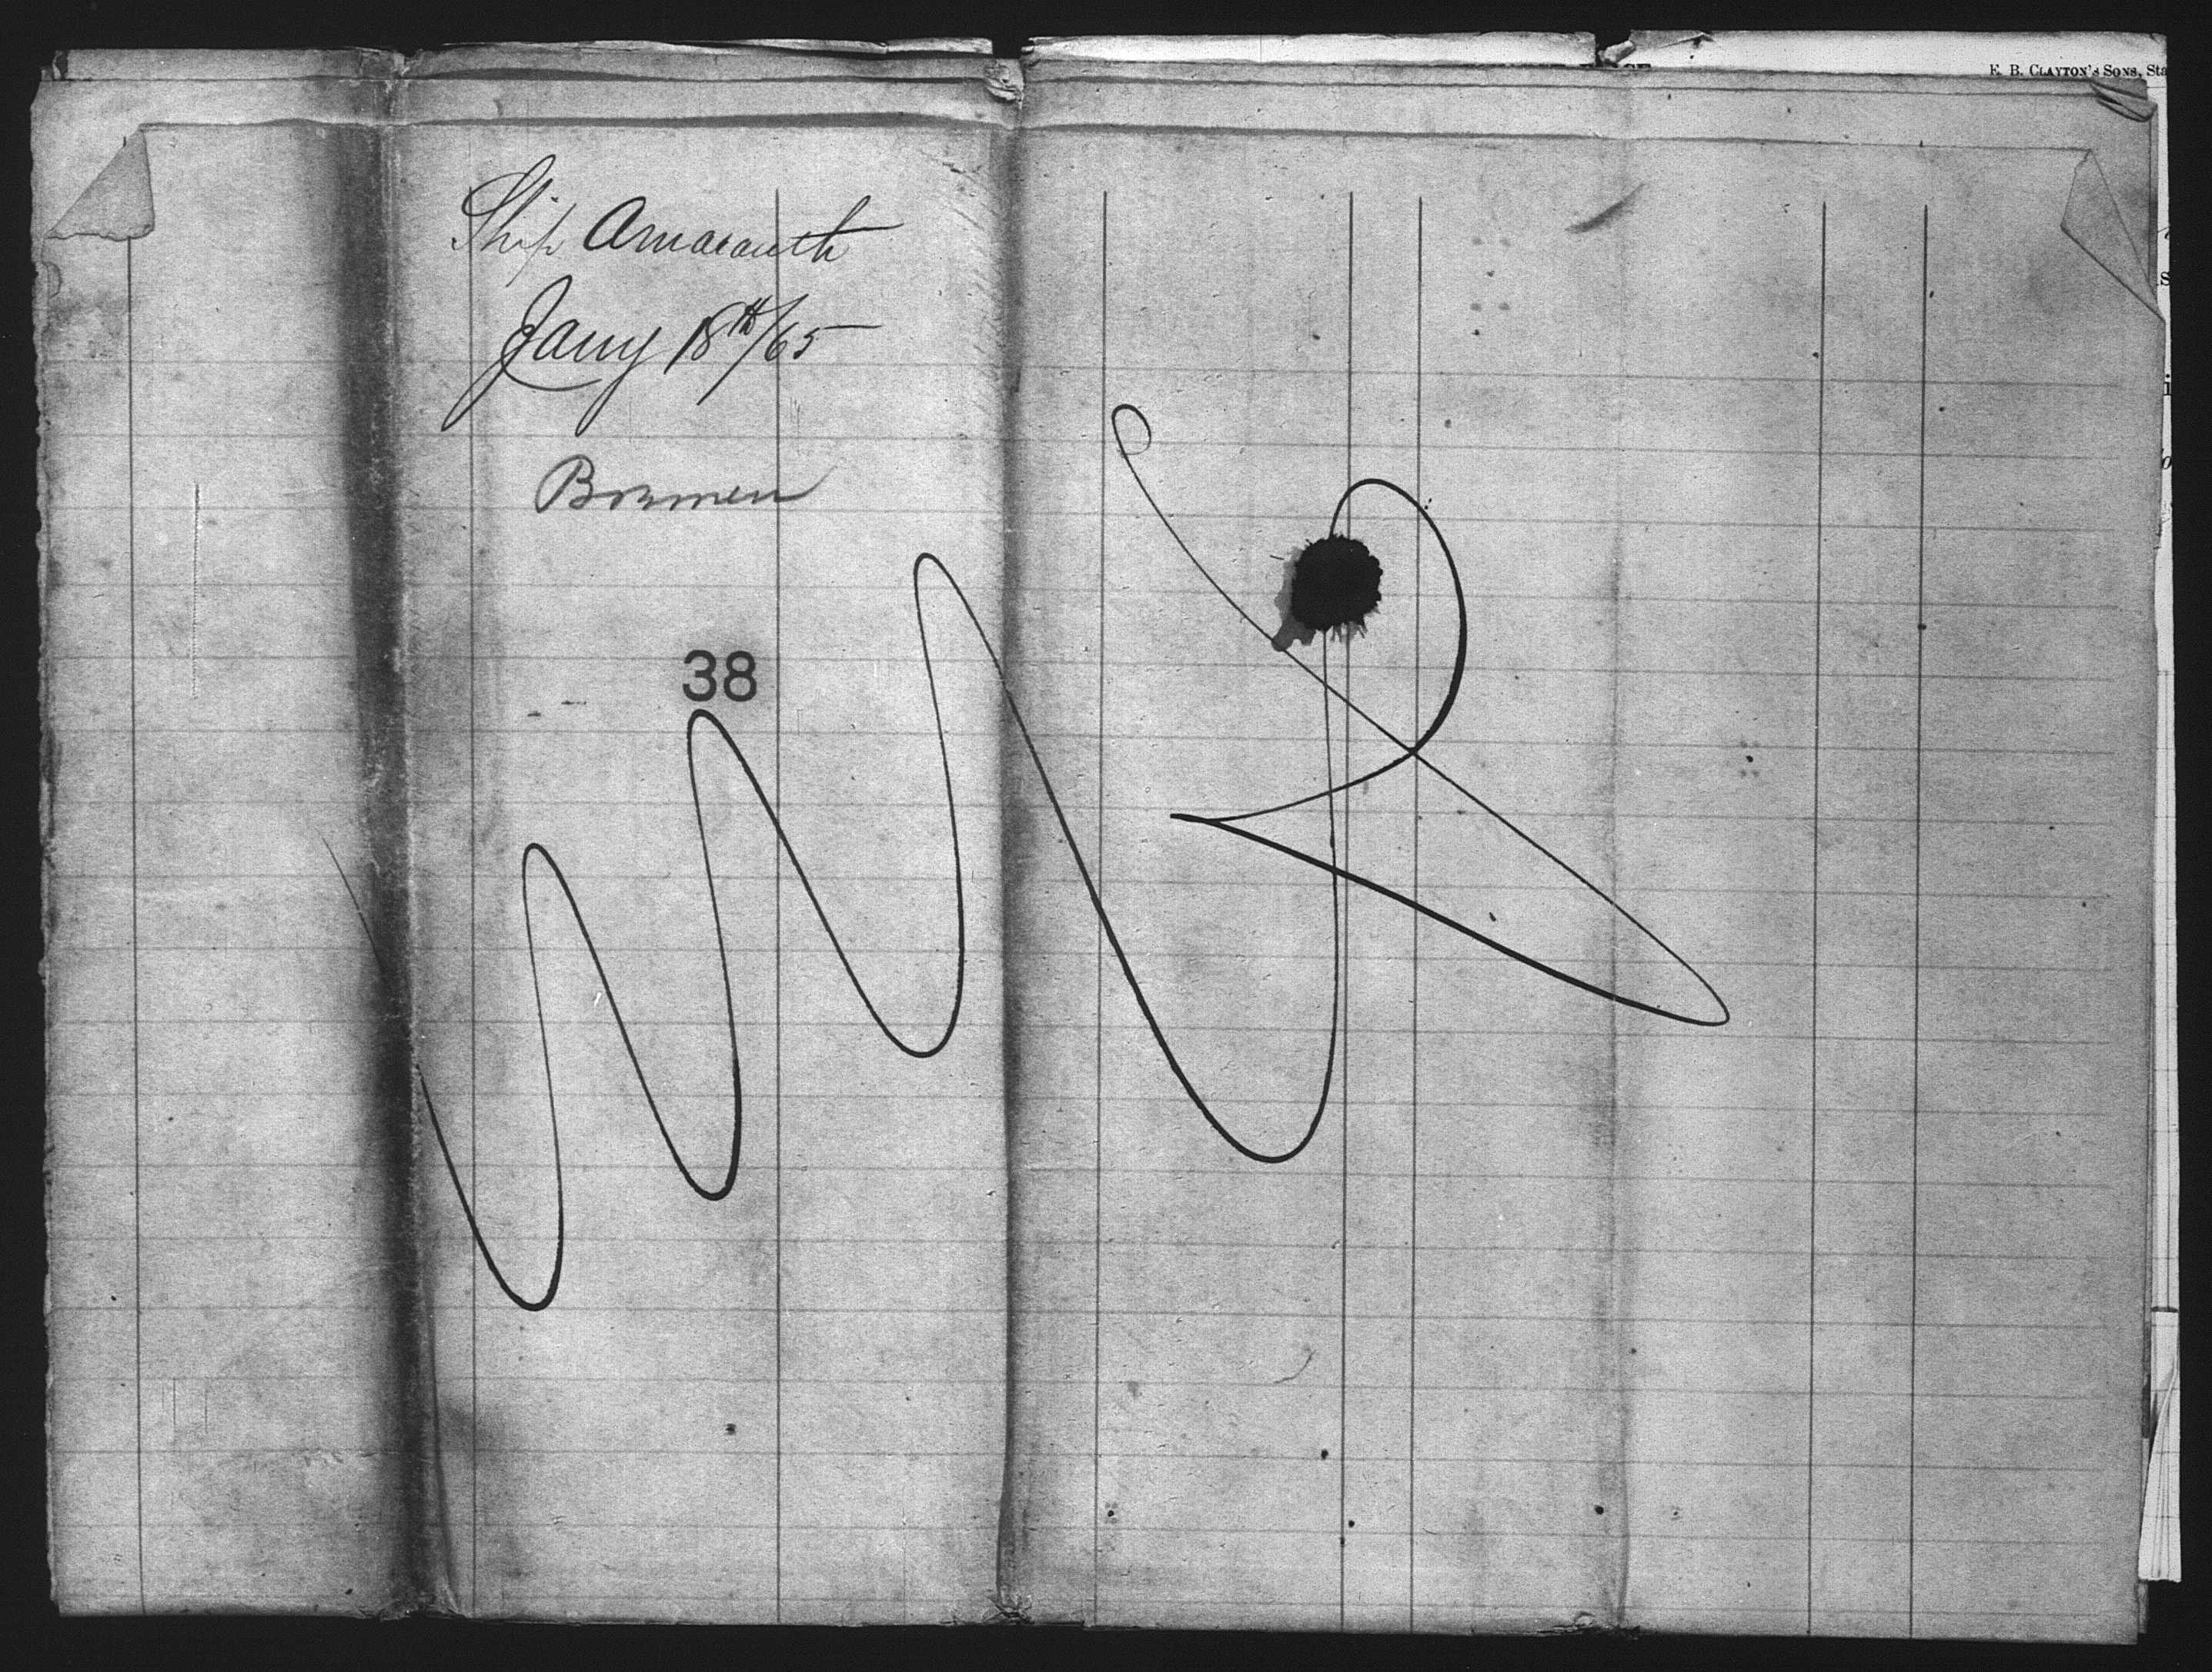 E. B. CLAYTON'S SONS, Sta
Ship Amaranth
Jany 18th/65
Bremen
38